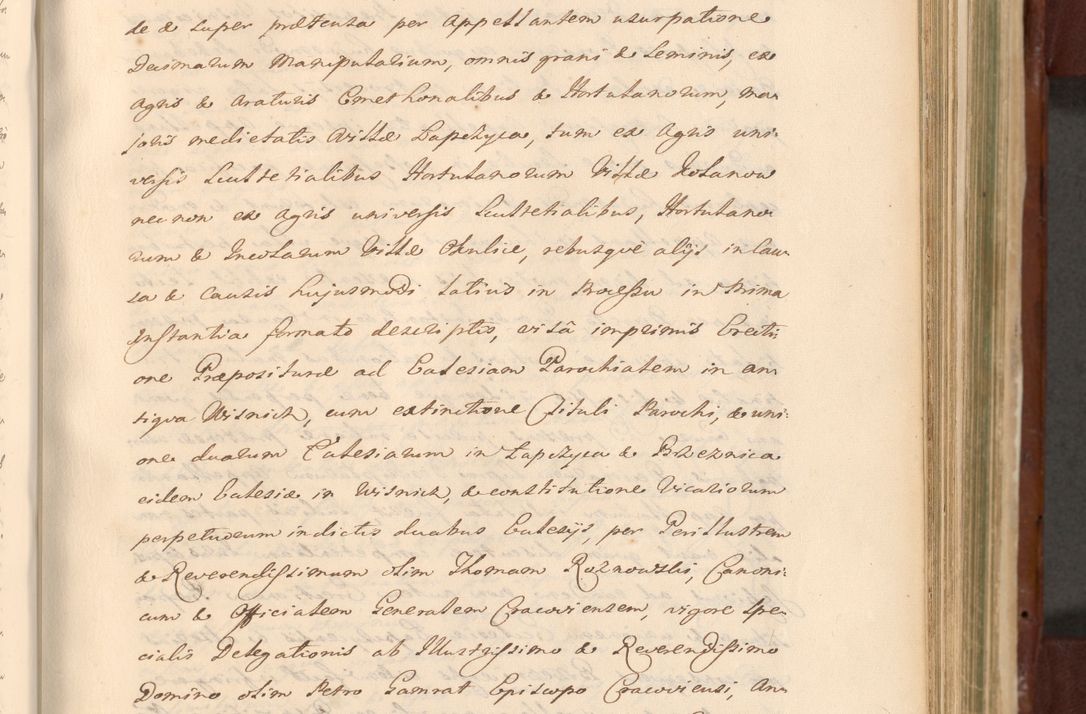 de & super prætensa per Appellantem usurpatione
Decimarum Manipularium, omnis grani & Seminis, ex
Agris & Araturis Cmethonalibus & Hortulanorum, ma-
joris medietatis Villæ Łapczyca, tum ex Agris uni-
versis Scultetialibus Hortulanorum Villæ Kolanow
nec non ex Agris universis Scultetialibus, Hortulano-
rum & Incolarum Villæ Okulice, rebusque alijs in Cau-
sa & Causis hujusmodi latius in Processu in Prima
Instantia formato descriptis, visâ imprimis Erecti-
one Præposituræ ad Ecclesiam Parochialem in an-
tiqua Wisnicz, cum extinctione Tituli Parochi, & uni-
one duarum Ecclesiarum in Łapczyca & Brzeznica
eidem Ecclesiæ in Wisnicz, & constitutione Vicariorum
perpetuorum in dictis duabus Ecclesijs, per Perillustrem
& Reverendissimum olim Thomam Roznowski, Canoni-
cum & Officialem Generalem Cracoviensem, vigore spe-
cialis Delegationis ab Illustrissimo & Reverendissimo
Domino olim Petro Gamrat Episcopo Cracoviensi, An-